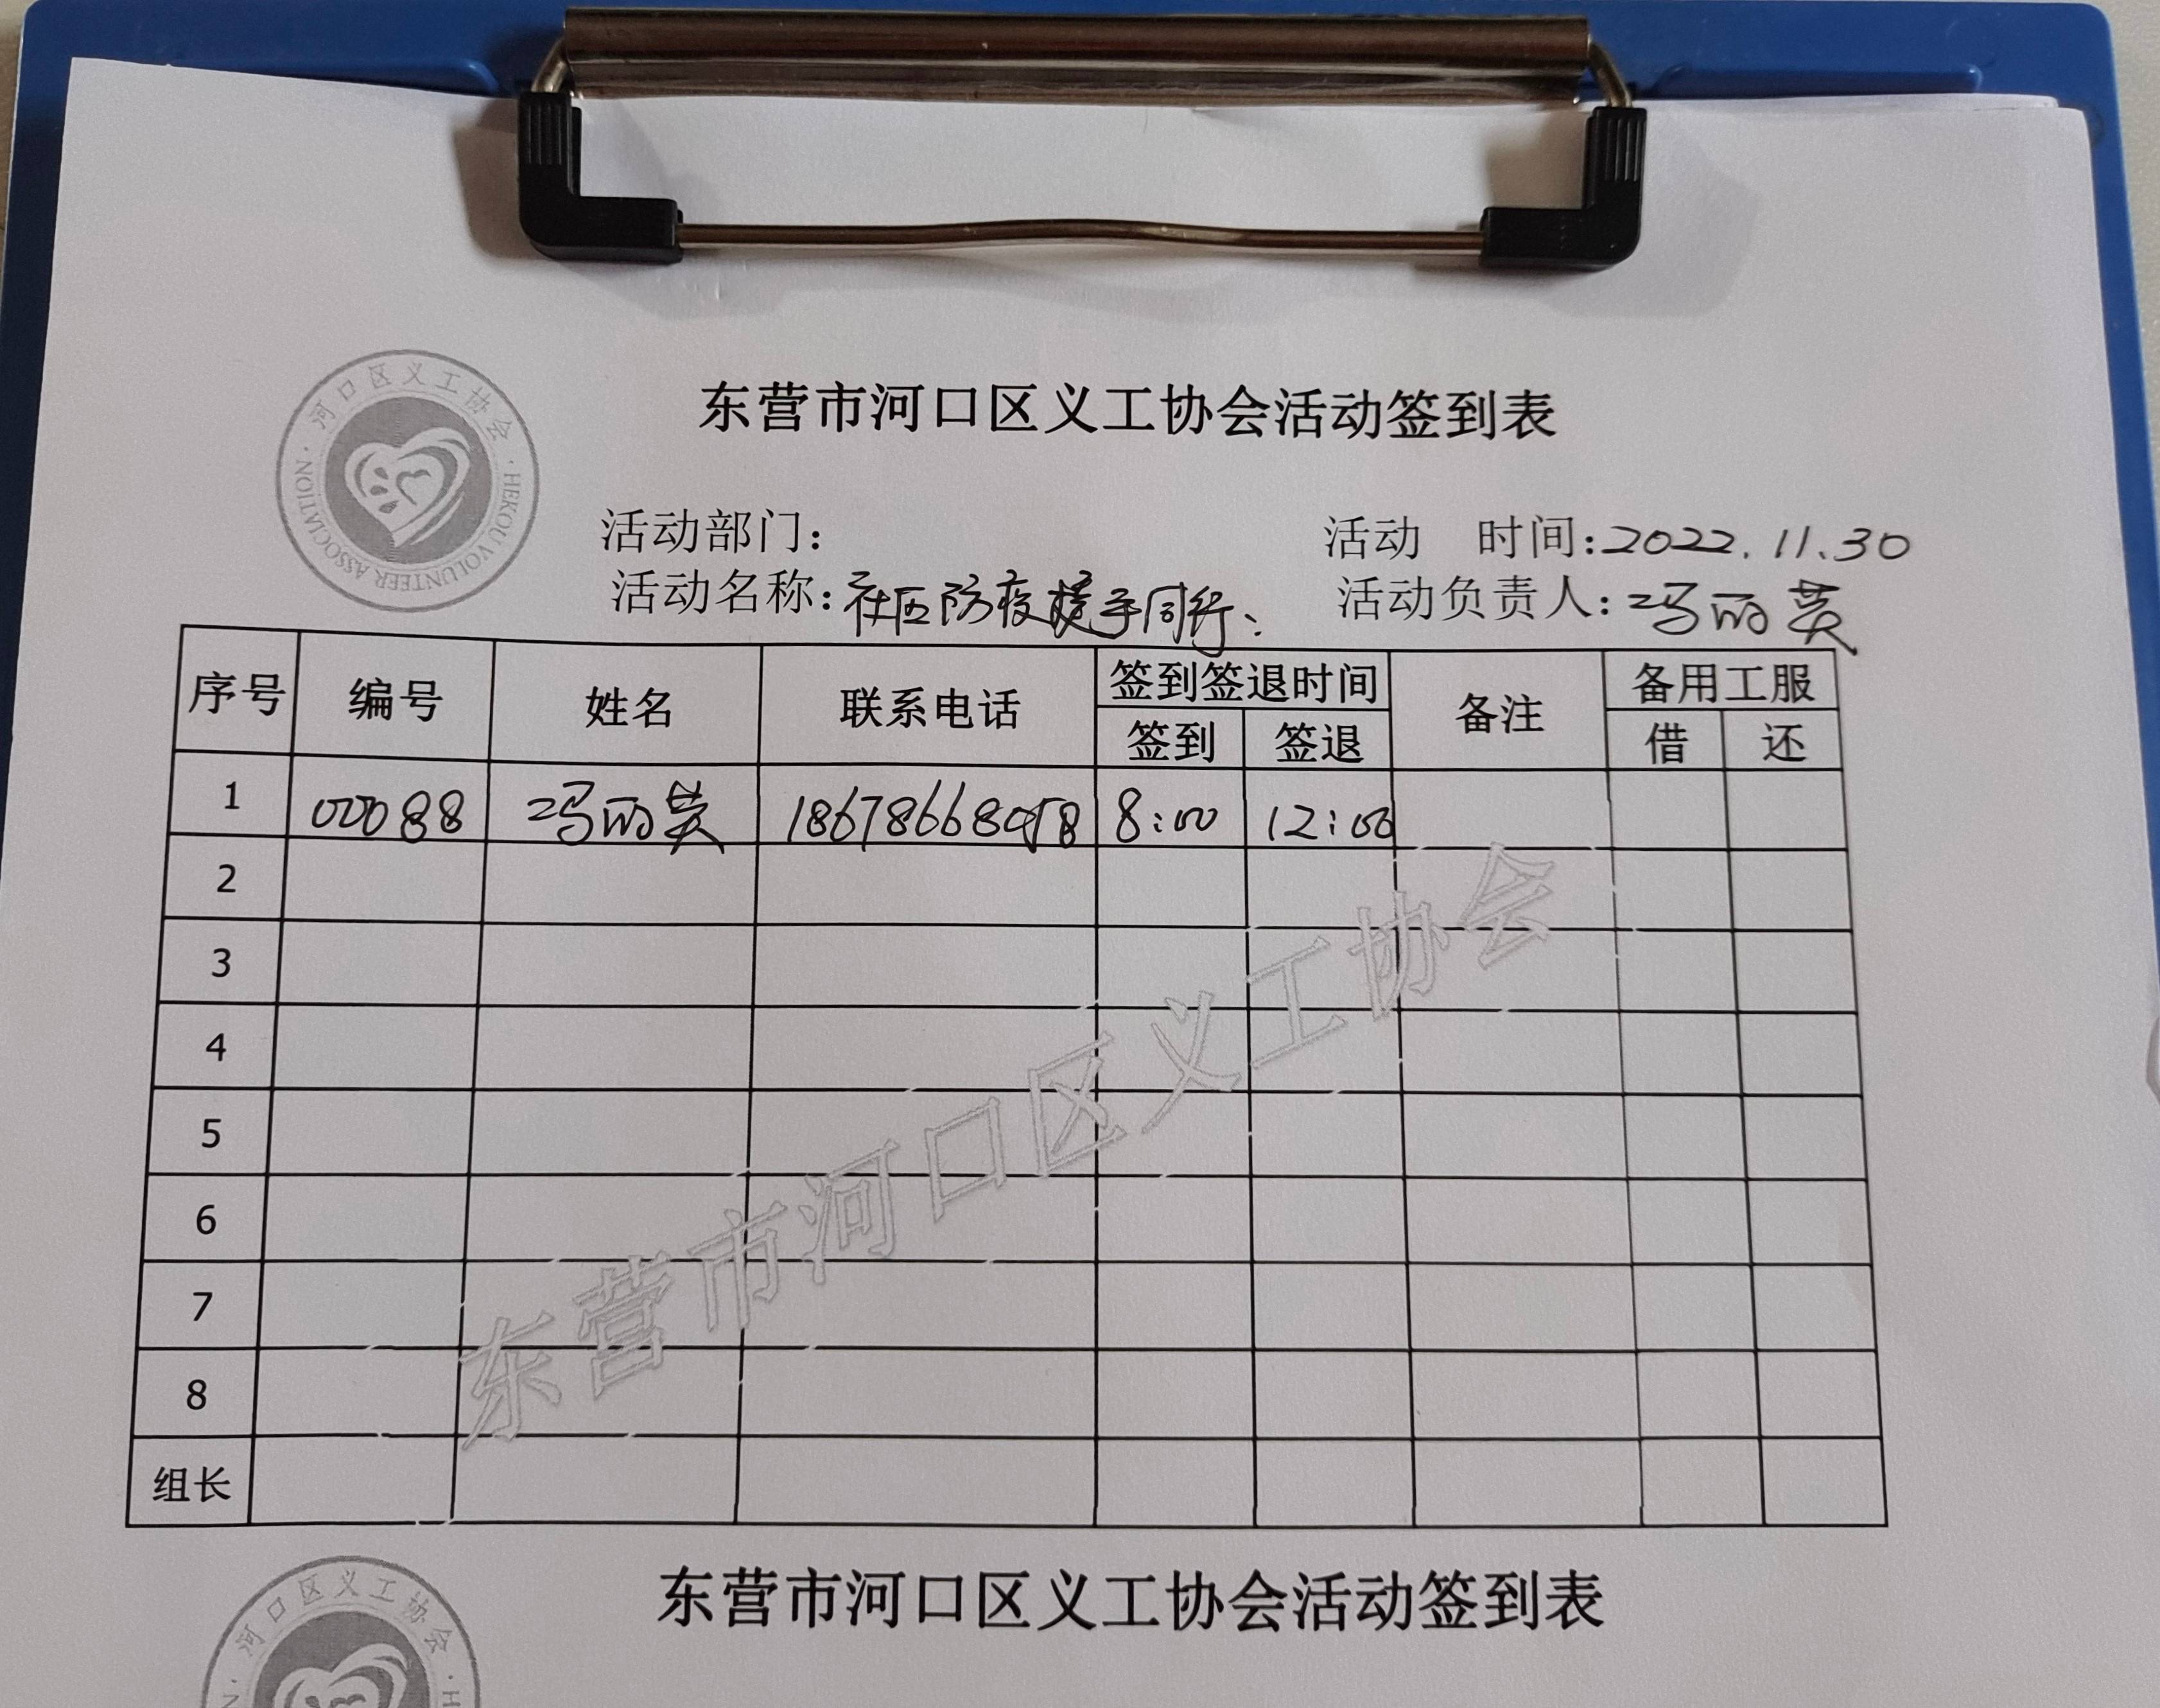 河口区义工协会
HEKOU VOLUNTEER ASSOCIATION
东营市河口区义工协会活动签到表
活动部门: 活动 时间:2022.11.30
活动名称:社区防疫携手同行、 活动负责人:冯丽英
序号 编号 姓名 联系电话 签到签退时间 备注 备用工服
签到 签退 借 还
1 00088 冯丽英 8:00 12:00
2
3
4
5
6
7
8
组长
东营市河口区义工协会
东营市河口区义工协会活动签到表
河口区义工协会